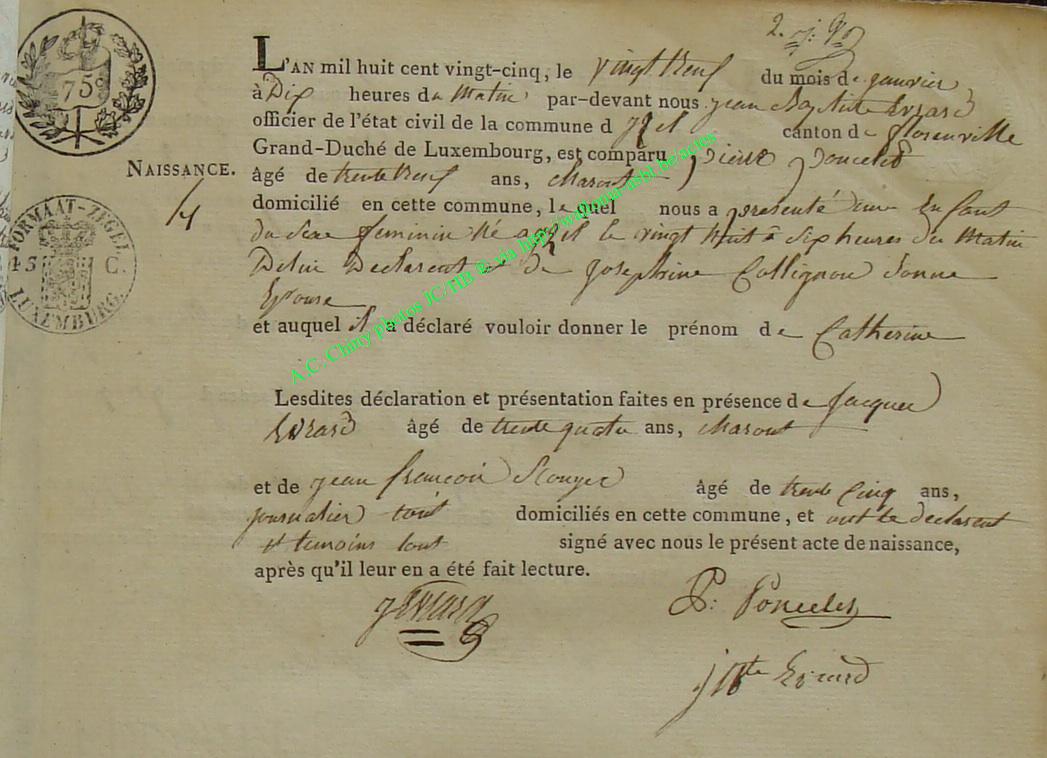 75
FORMAAT-ZEGEL
15 C.
LUXEMBURG.
NAISSANCE.
L'AN mil huit cent vingt-cinq, le vingt neuf du mois de janvier
à Dix heures du Matin par-devant nous jean Baptiste Evrard
officier de l'état civil de la commune d canton de florenville
Grand-Duché de Luxembourg, est comparu pierre poncelet
âgé de trente neuf ans, Maront
domicilié en cette commune, lequel nous a presenté une Enfant
du Sexe feminin Né a le vingt huit à Six heures du Matin
Delui Declarent et De josephine Collignon Sonne
Epouse
et auquel il a déclaré vouloir donner le prénom de Catherine
Lesdites déclaration et présentation faites en présence de Jacques
Evrard âgé de trente quatre ans, Maront
et de jean françois âgé de trente Cinq ans,
journalier tout domiciliés en cette commune, et ont le declarent
et temoins tout signé avec nous le présent acte de naissance,
après qu'il leur en a été fait lecture.
jEvrard
P: Poncelet
jBte Evrard
A.C. Chiny photos JC/TIB ® via http://wallonia-asbl.be/actes